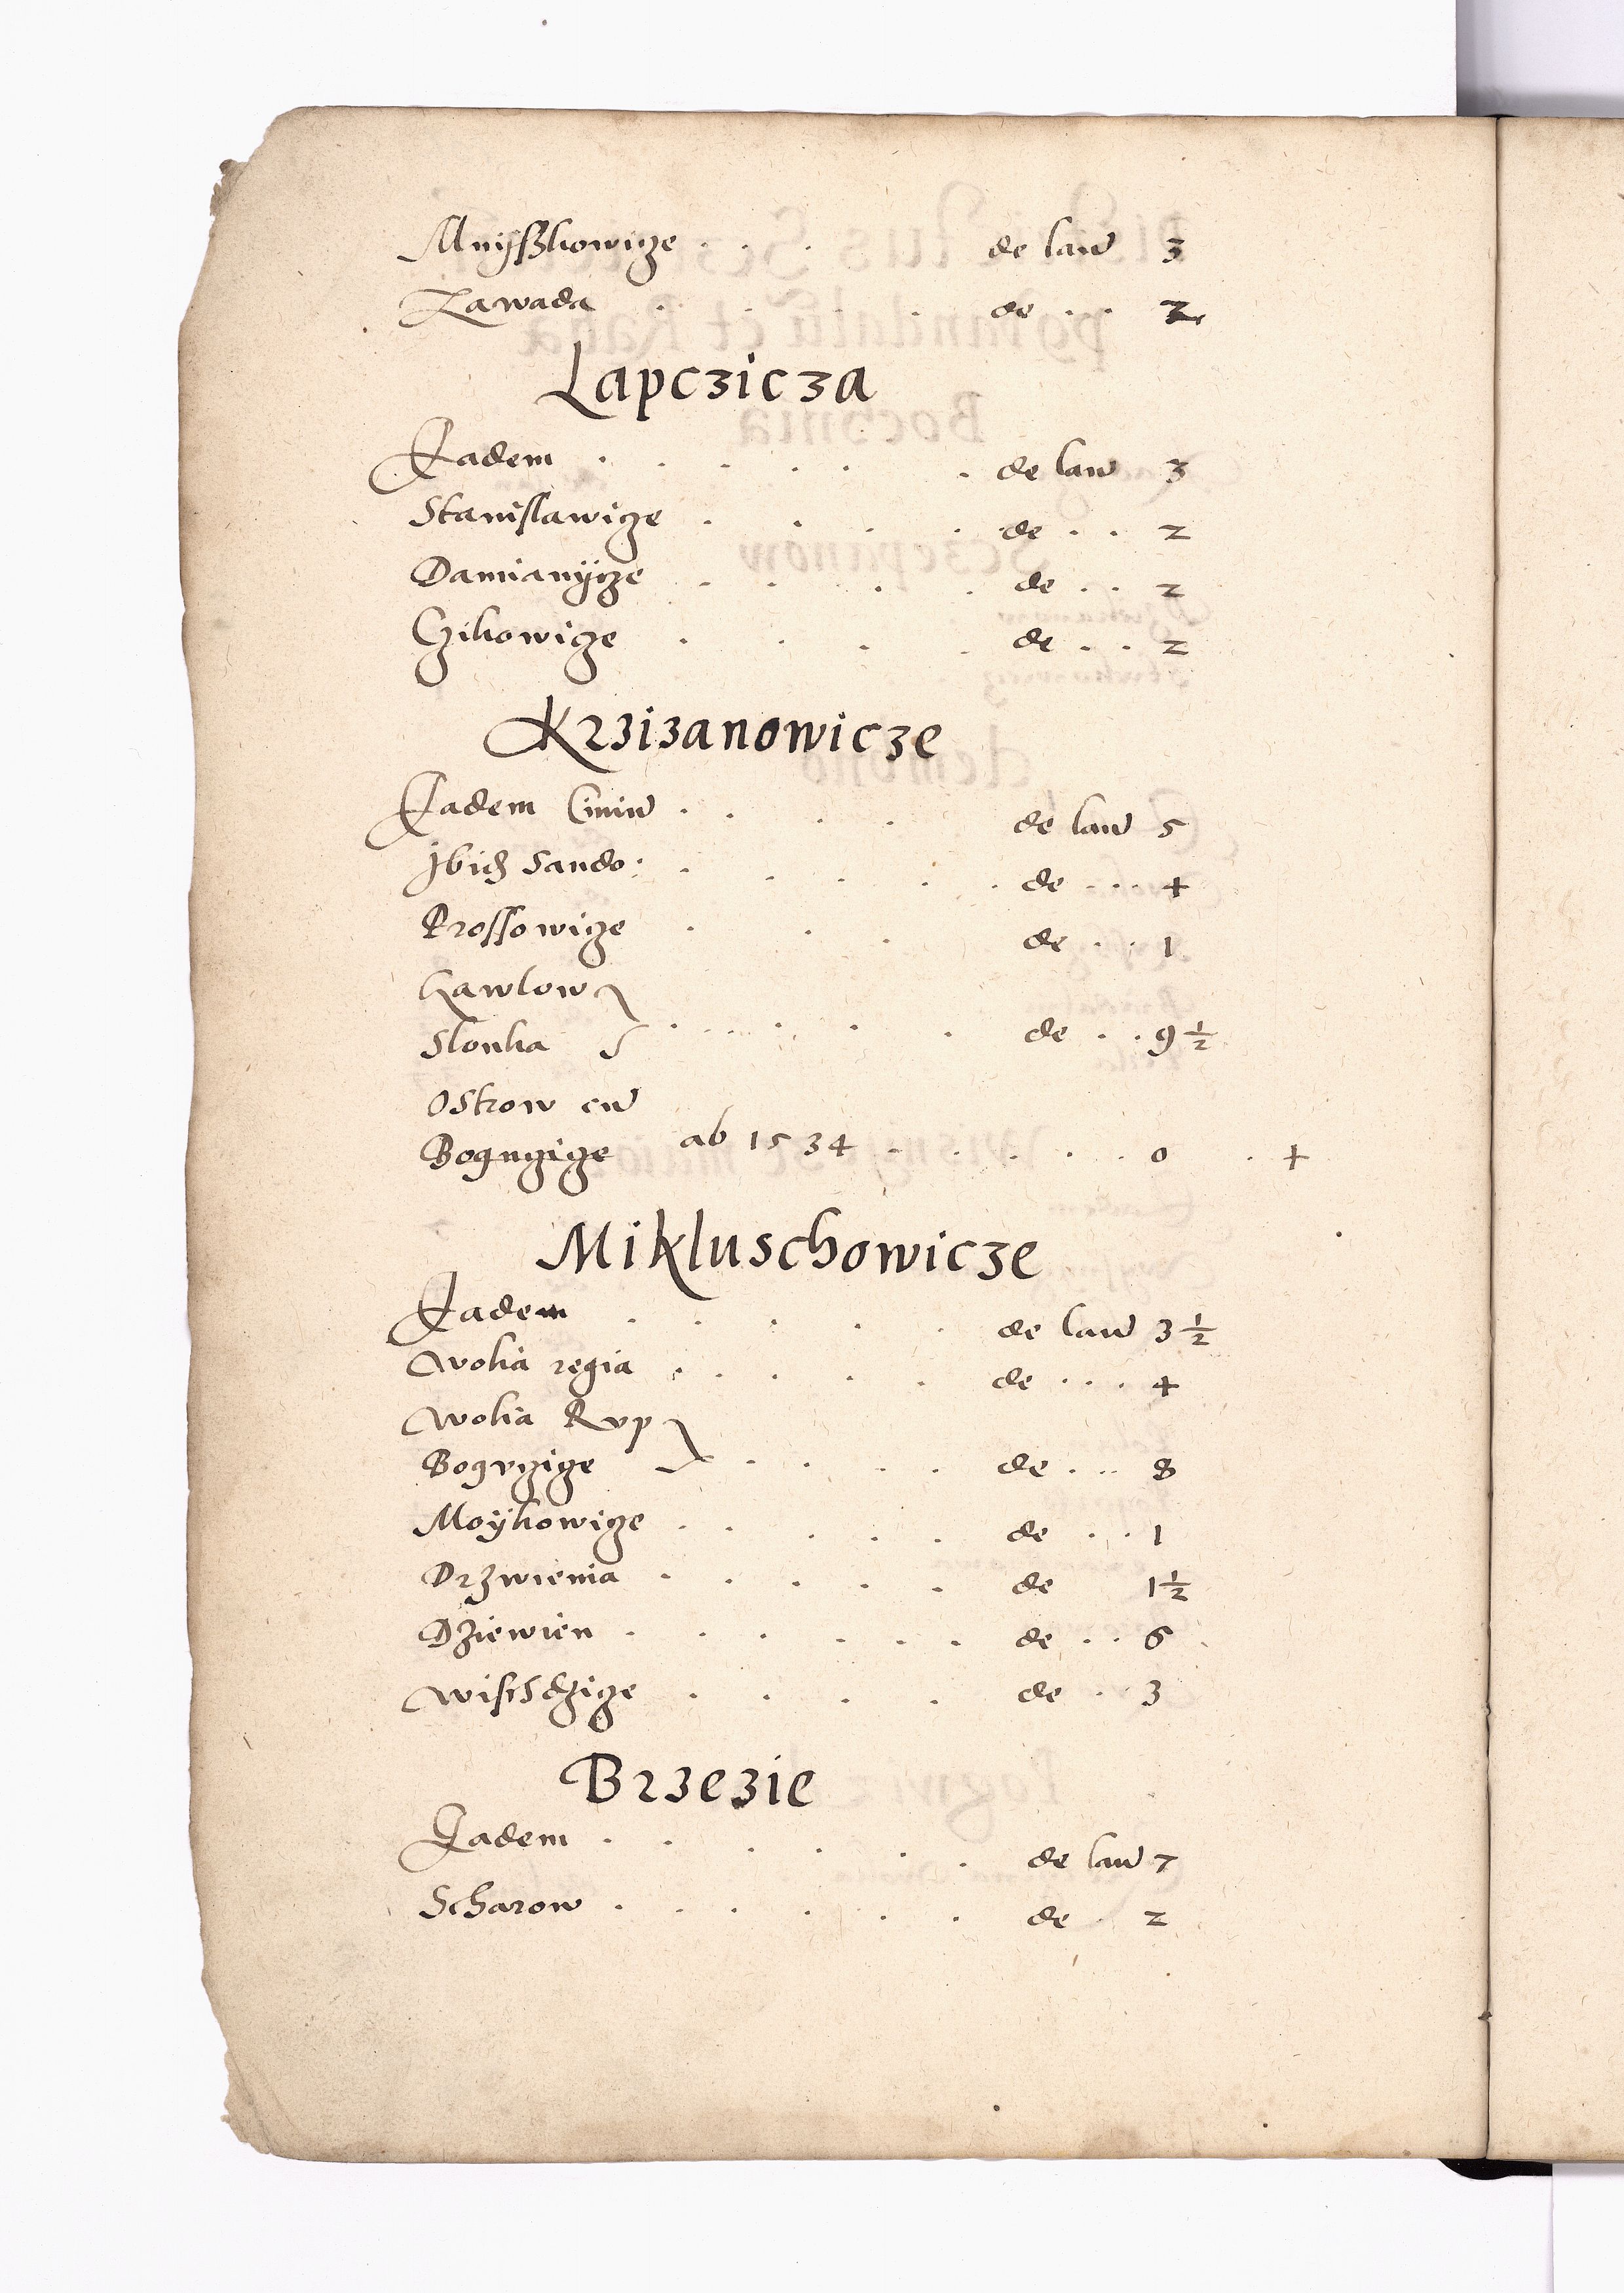 Mnÿsskowicze . . . de lan 3
Zawada . . . . de . . 2
Lapczicza
Eadem . . . . . . de lan 3
Stanislawicze . . . . de . . 2
Damianÿcze . . . . de . . 2
Czikowicze . . . . de . . 2
Krzizanowicze
Eadem Cmiw . . . . de lan 5
Ibid Sando: . . . . . de . . . 4
Krossowicze . . . de . . 1
Gawlow
Slonka . . . . . de . . 9 1/2
Ostrow cu
Boguczicze ab 1534 . . . . . 0 . +
Mikluschowicze
Eadem . . . . . de lan 3 1/2
Wolia regia . . . . . de . . . 4
Wolia Rup
Bogvczicze . . . . de . . . 8
Moÿkowicze . . . . . de . . 1
Drzwienia . . . . . de 1 1/2
Dziewien . . . . . . de . . 6
Wischdzicze . . . . de . 3
Brzezie
Eadem . . . . . . de lan 7
Scharow . . . . . . de . 2